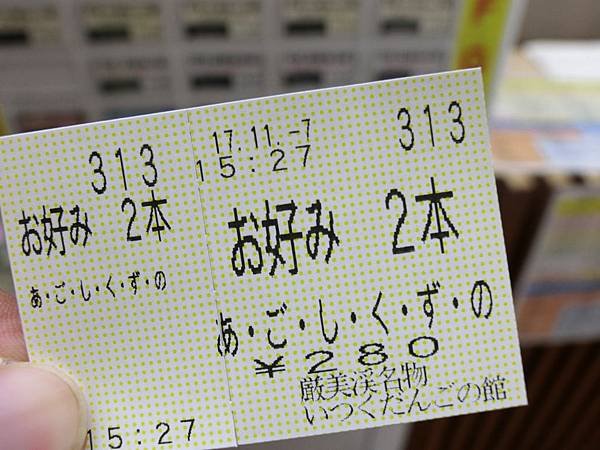 313
お好み 2本
あ・ご・し・く・ず・の
15:27
17.11.-7
313
15:27
お好み 2本
あ・ご・し・く・ず・の
¥280
厳美渓名物
いつくだんごの館